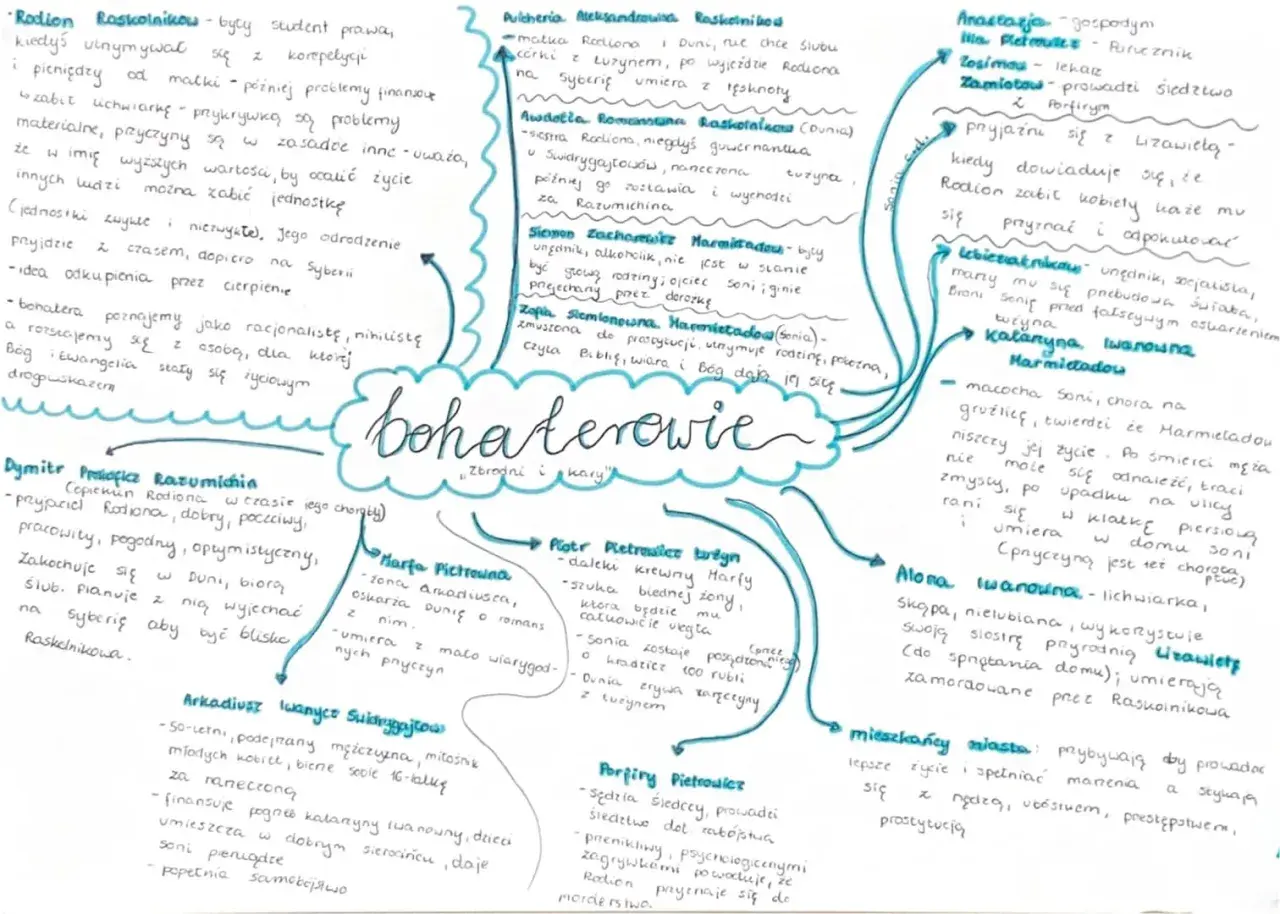 Rodion Raskolnikow - były student prawa,
kiedyś utrzymywał się z korepetycji
i pieniędzy od matki - później problemy finansowe
zabił lichwiarkę - przykrywką są problemy
materialne, przyczyny są w zasadzie inne - uważa,
że w imię wyższych wartości, by ocalić życie
innych ludzi można zabić jednostkę
(jednostki zwykłe i niezwykłe). Jego odrodzenie
przyjdzie z czasem, dopiero na Syberii
- idea odkupienia przez cierpienie
- bohatera poznajemy jako racjonalistę, nihilistę
a rozstajemy się z osobą, dla której
Bóg i Ewangelia stały się życiowym
drogowskazem
Pulcheria Aleksandrowna Raskolnikow
- matka Rodiona i Duni, nie chce ślubu
córki z Łużynem, po wyjeździe Rodiona
na Syberię umiera z tęsknoty
Awdotia Romanowna Raskolnikow (Dunia)
- siostra Rodiona, niegdyś guwernantka
u Swidrygajłowów, narzeczona Łużyna,
później go zostawia i wychodzi
za Razumichina
Siemion Zacharewicz Marmieładow - były
urzędnik, alkoholik, nie jest w stanie
być głową rodziny; ojciec Soni; ginie
przejechany przez dorożkę
Zofia Siemionowna Marmieładow (Sonia) -
zmuszona do prostytucji, utrzymuje rodzinę, pobożna,
czyta Biblię, wiara i Bóg dają jej siłę
Anastazja - gospodyni
Ilia Pietrowicz - Porucznik
Zosimow - lekarz
Zamiotow - prowadzi śledztwo
z Porfirym
Sonia
przyjaźni się z Lizawietą -
kiedy dowiaduje się, że
Rodion zabił kobiety każe mu
się przyznać i odpokutować
Lebieziatnikow - urzędnik, socjalista,
marzy mu się przebudowa świata,
Broni Sonię przed fałszywym oskarżeniem
Łużyna
Katarzyna Iwanowna
Marmieładow
- macocha Soni, chora na
gruźlicę, twierdzi że Marmieładow
niszczy jej życie. Po śmierci męża
nie może się odnaleźć, traci
zmysły, po upadku na ulicy
rani się w klatkę piersiową
i umiera w domu Soni
(przyczyną jest też choroba
płuc)
bohaterowie
"Zbrodni i kary"
Dymitr Prokoficz Razumichin
(opiekun Rodiona w czasie jego choroby)
- przyjaciel Rodiona, dobry, poczciwy,
pracowity, pogodny, optymistyczny,
Zakochuje się w Duni, biorą
ślub. Planuje z nią wyjechać
na Syberię aby być blisko
Raskolnikowa.
Marfa Pietrowna
- żona Arkadiusza,
oskarża Dunię o romans
z nim.
- umiera z mało wiarygod-
nych przyczyn
Piotr Pietrowicz Łużyn
- daleki krewny Marfy
- szuka biednej żony,
która będzie mu
całkowicie uległa
- Sonia zostaje posądzona (przez niego)
o kradzież 100 rubli
- Dunia zrywa zaręczyny
z Łużynem
Alona Iwanowna - lichwiarka,
skąpa, nielubiana, wykorzystuje
swoją siostrę przyrodnią Lizawietę
(do sprzątania domu); umierają
zamordowane przez Raskolnikowa
Arkadiusz Iwanycz Swidrygajłow
- 50-letni, podejrzany mężczyzna, miłośnik
młodych kobiet, bierze sobie 16-latkę
za narzeczoną
- finansuje pogrzeb Katarzyny Iwanowny, dzieci
umieszcza w dobrym sierocińcu, daje
Soni pieniądze
- popełnia samobójstwo
Porfiry Pietrowicz
- sędzia śledczy, prowadzi
śledztwo dot. zabójstwa
- przenikliwy, psychologicznymi
zagrywkami powoduje, że
Rodion przyznaje się do
morderstwa.
mieszkańcy miasta: przybywają aby prowadzić
lepsze życie i spełniać marzenia a stykają
się z nędzą, ubóstwem, przestępstwem,
prostytucją